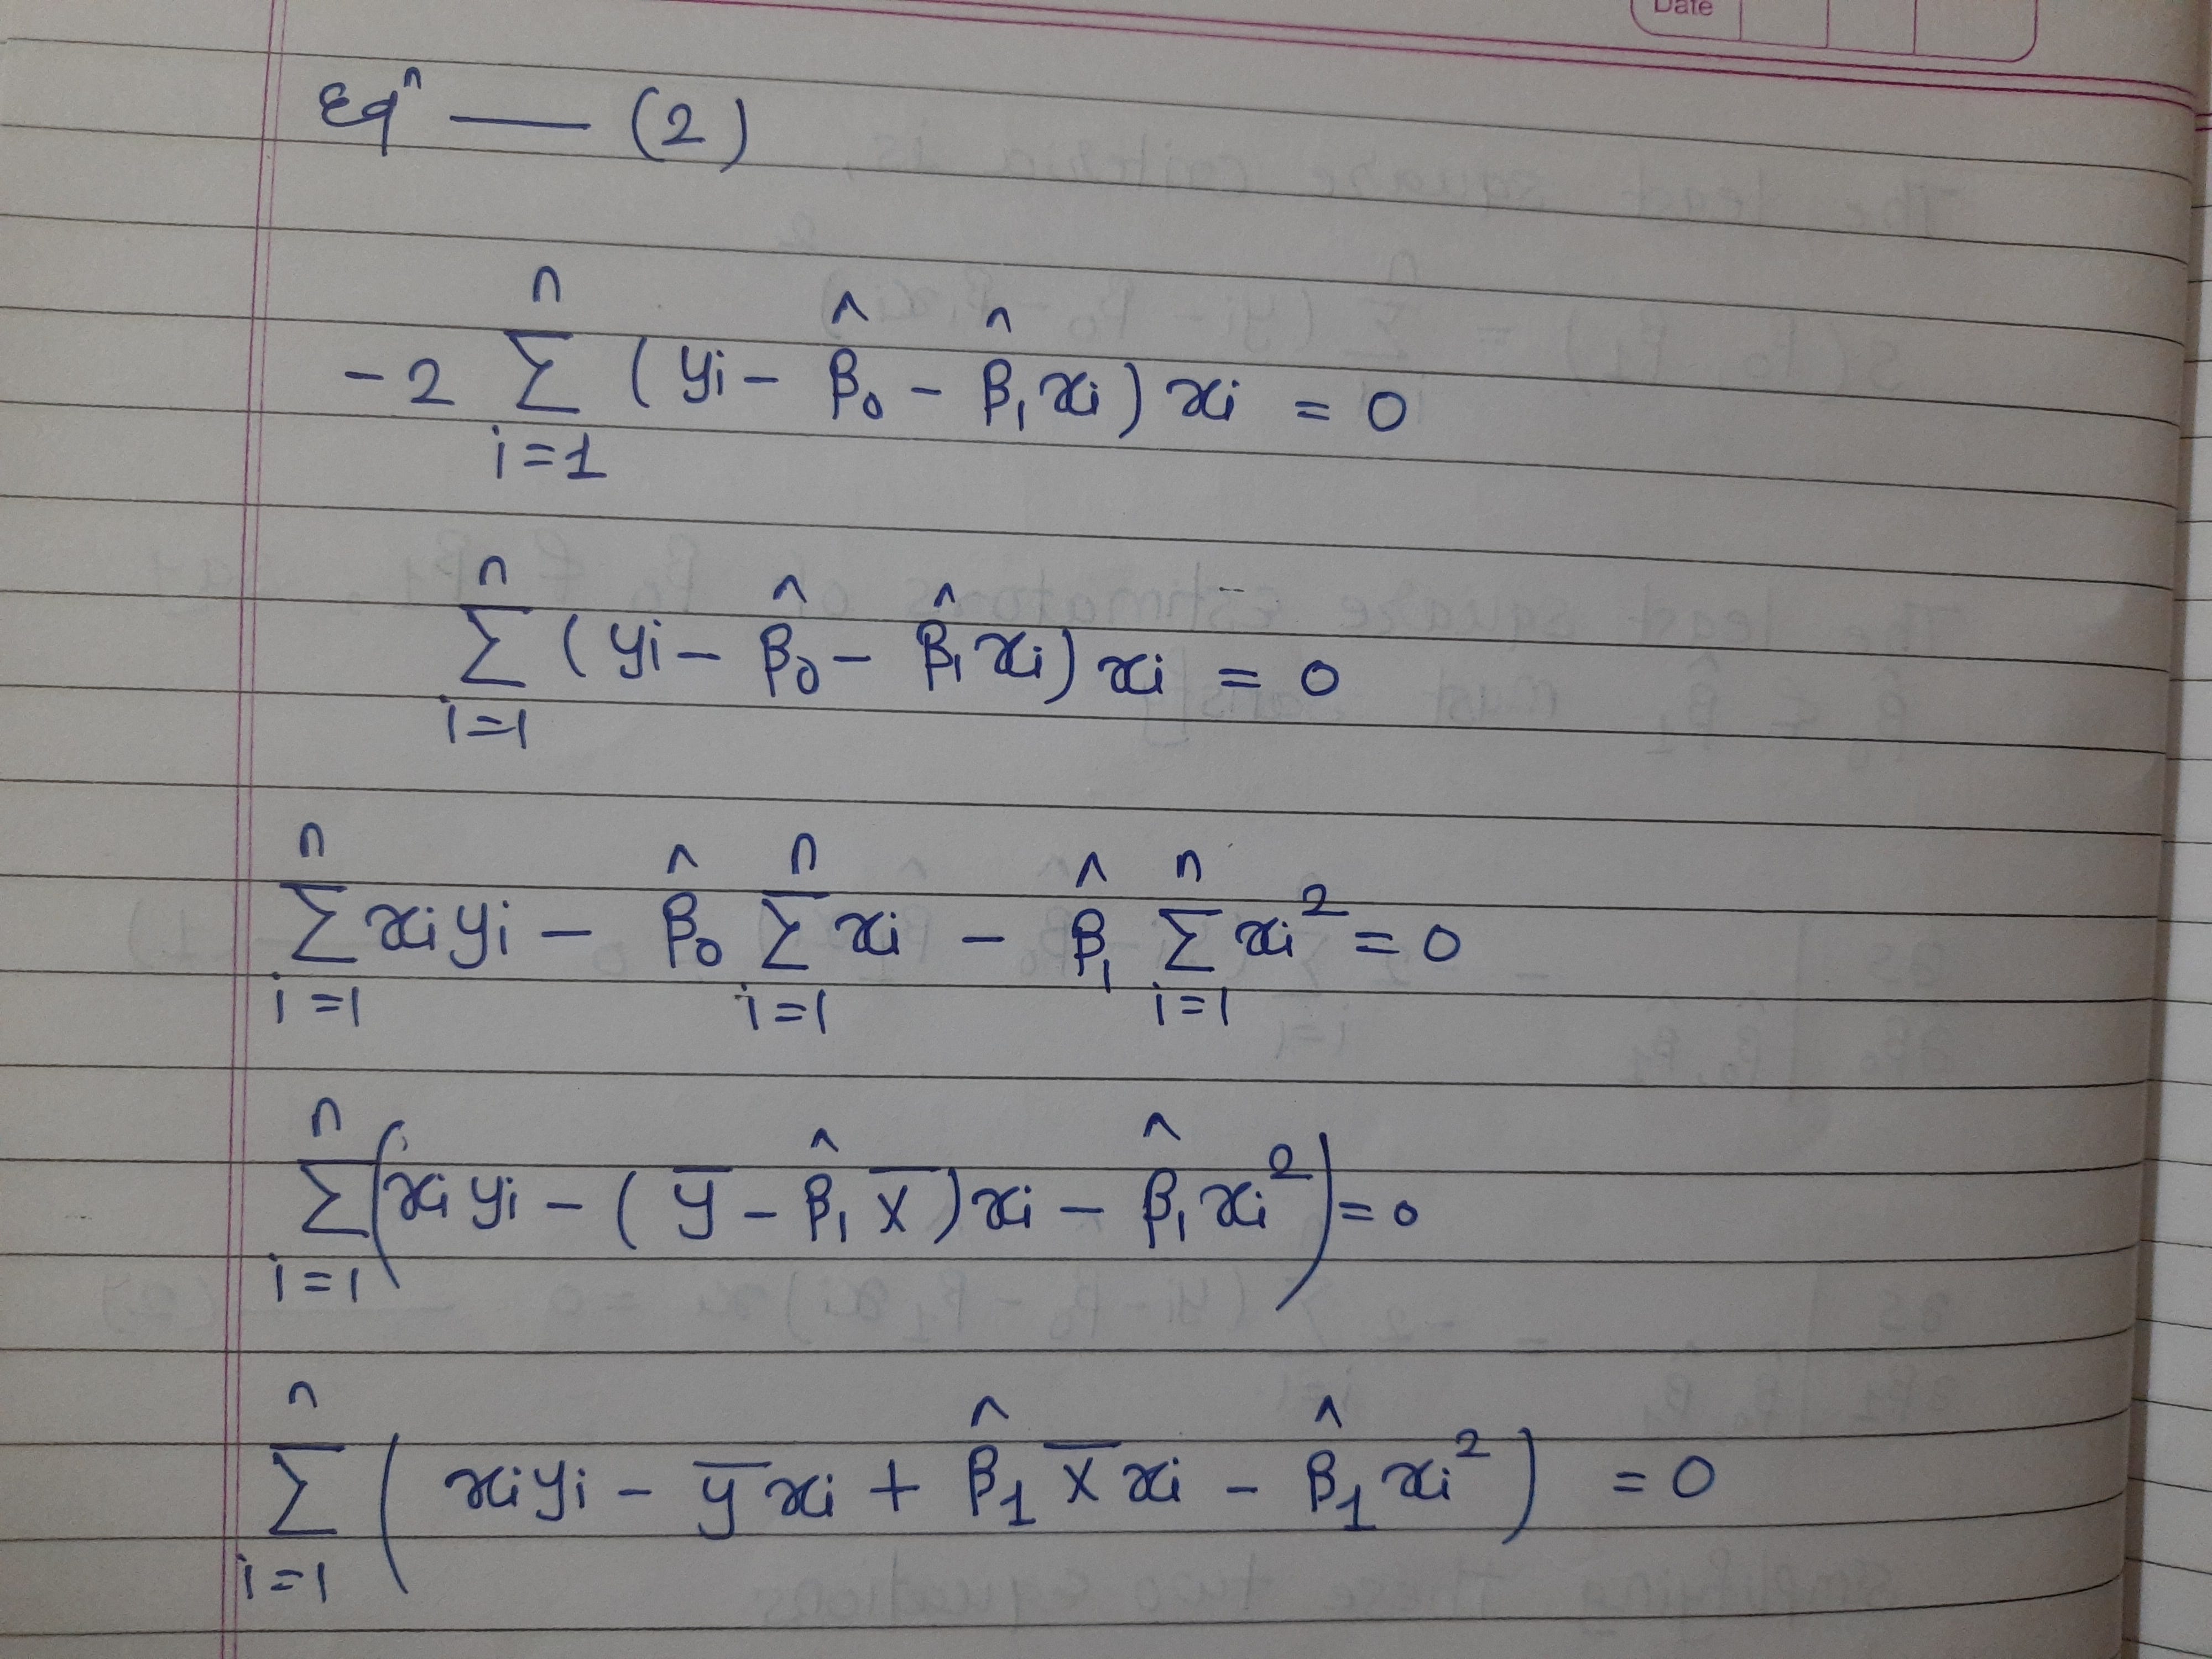 Date
Eqⁿ — (2)
-2 Σ_{i=1}^{n} (yi - β̂₀ - β̂₁xi) xi = 0
Σ_{i=1}^{n} (yi - β̂₀ - β̂₁xi) xi = 0
Σ_{i=1}^{n} xiyi - β̂₀ Σ_{i=1}^{n} xi - β̂₁ Σ_{i=1}^{n} xi² = 0
Σ_{i=1}^{n} (xiyi - (y̅ - β̂₁x̅)xi - β̂₁xi²) = 0
Σ_{i=1}^{n} (xiyi - y̅xi + β̂₁x̅xi - β̂₁xi²) = 0